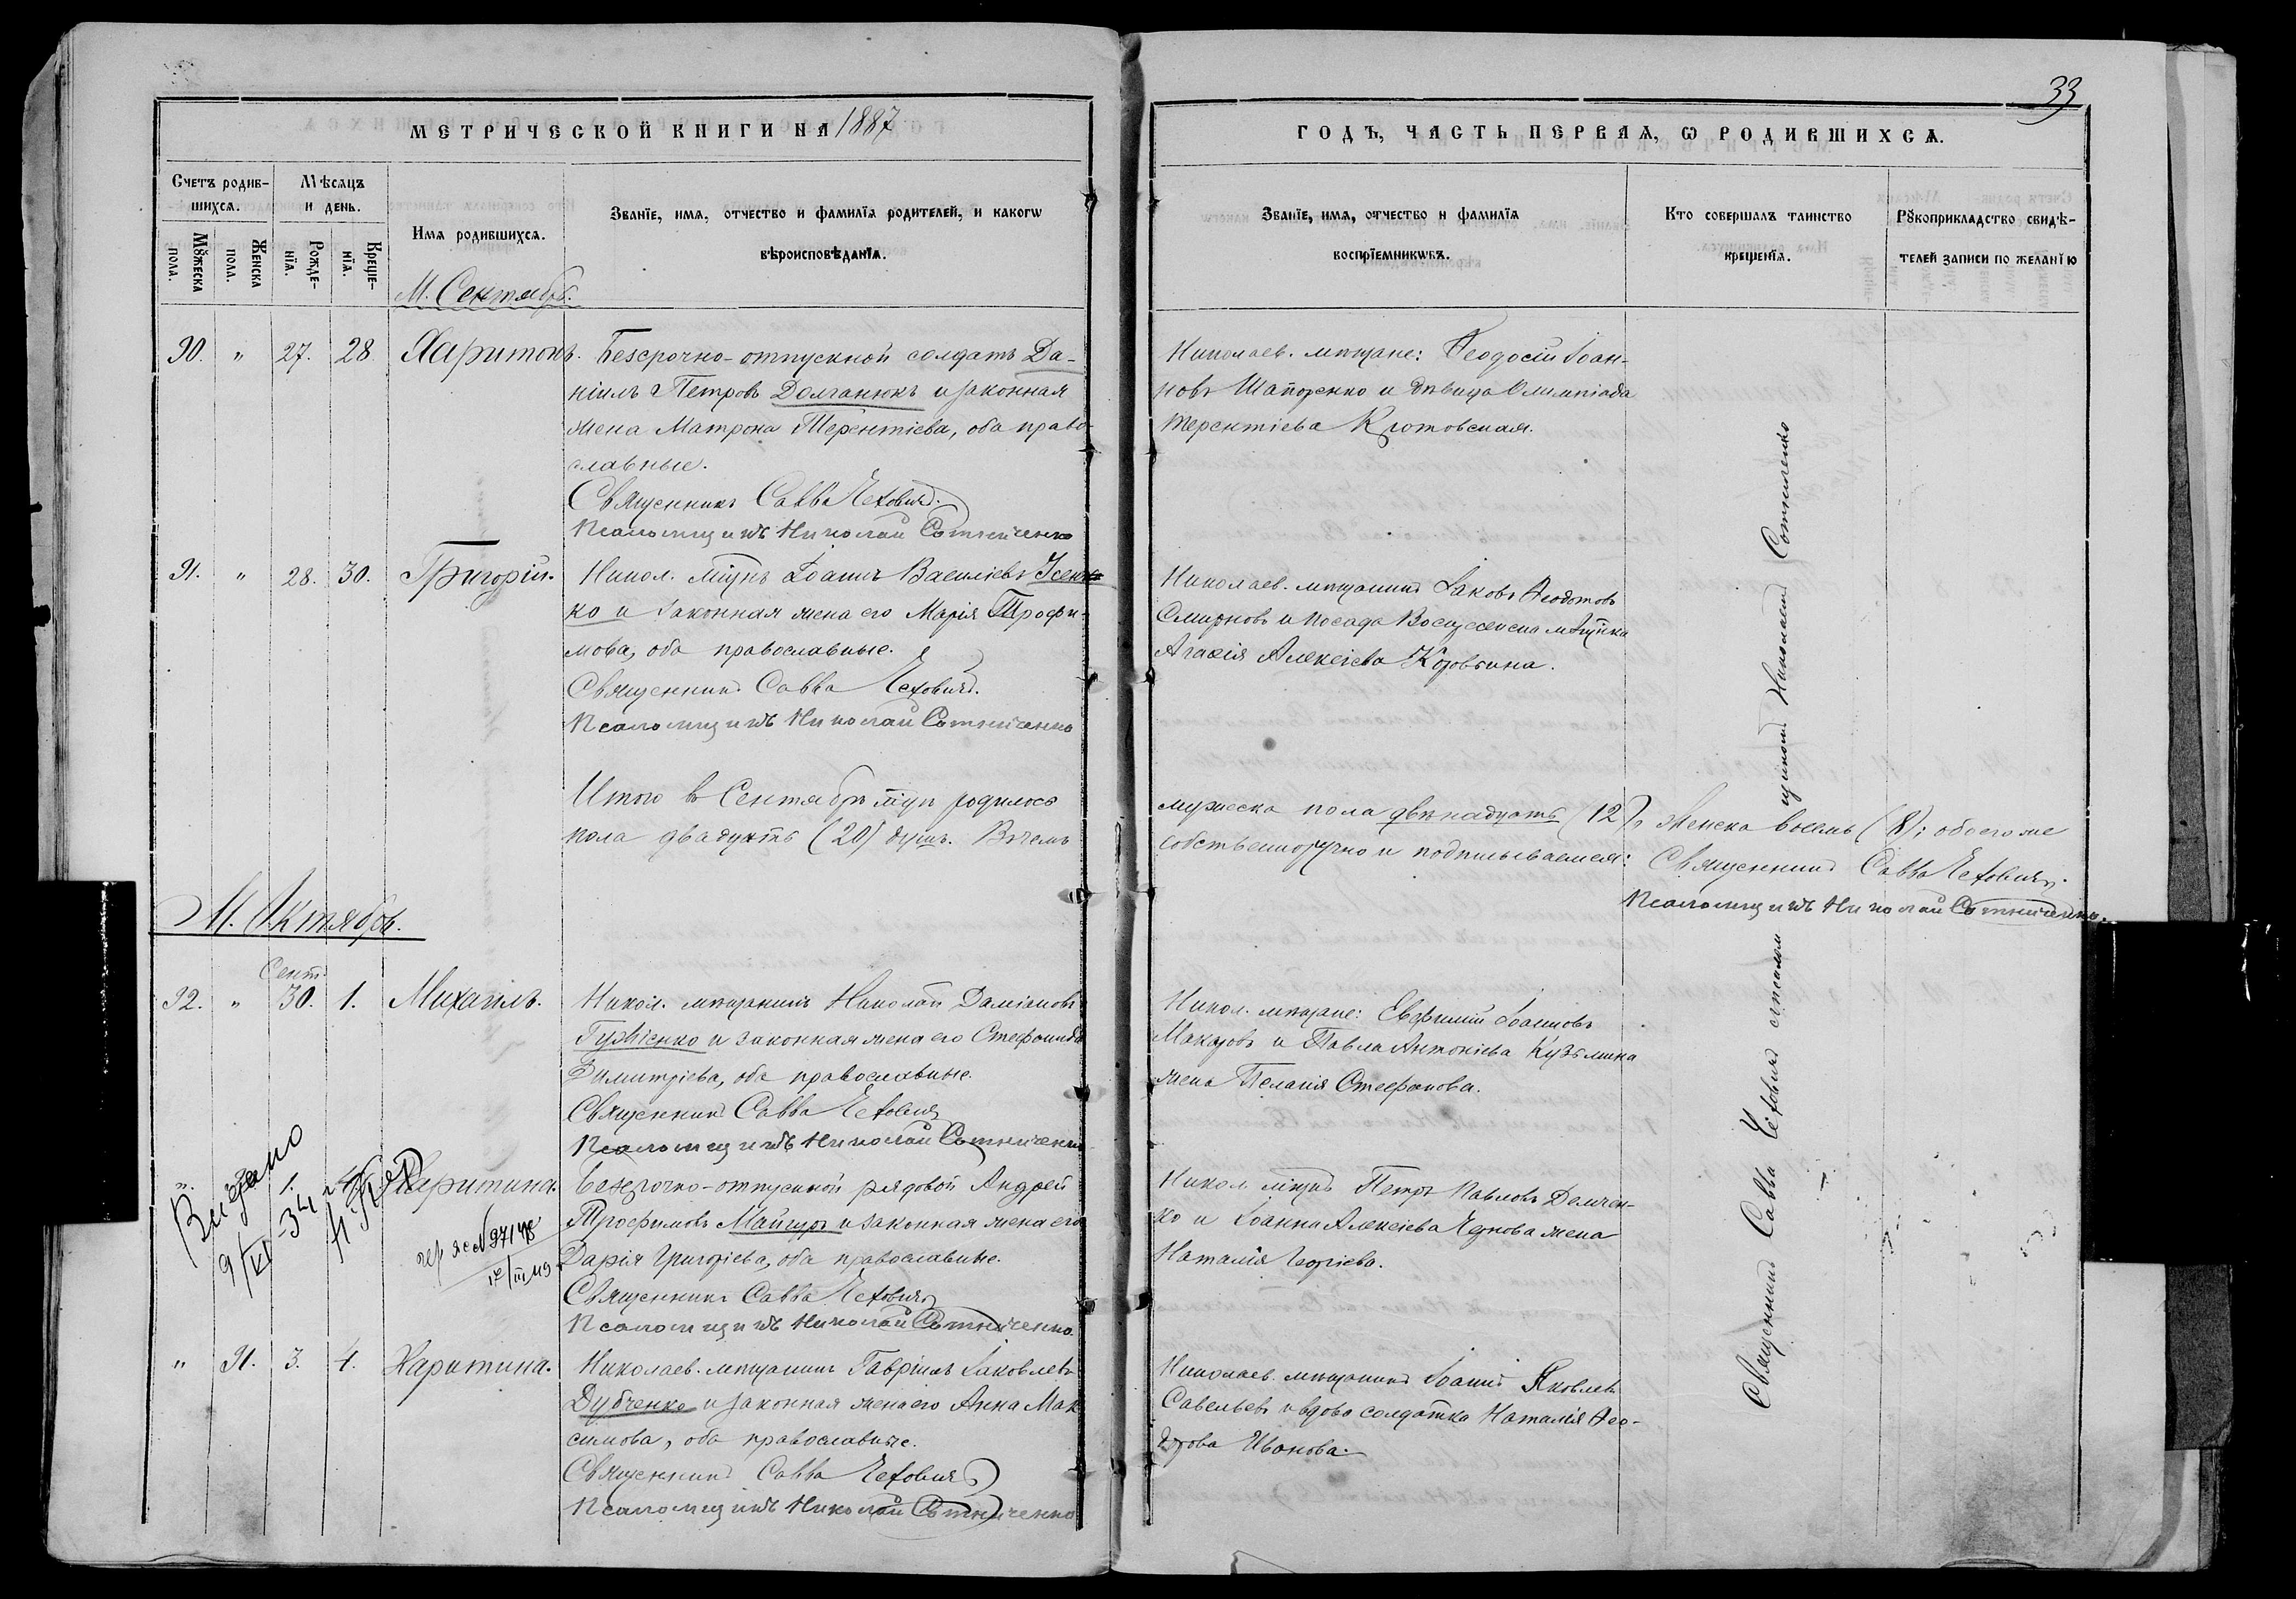 33
МЕТРИЧЕСКОЙ КНИГИ НА 1887
ГОДЪ, ЧАСТЬ ПЕРВАЯ, Ѡ РОДИВШИХСѦ.
Счетъ родив-
шихсѧ.
Мѣсѧцъ
и день.
Имѧ родившихсѧ.
Званїе, имѧ, отчество и фамилїѧ родителей, и какогѡ
вѣроисповѣданїѧ.
Мꙋжеска
пола.
Женска
пола.
Рожде-
нїѧ.
Креще-
нїѧ.
Званїе, имѧ, отчество и фамилїѧ
воспрїемникѡвъ.
Кто совершалъ таинство
крещенїѧ.
Рꙋкоприкладство свидѣ-
телей записи по желанїю
М. Сентябрь.
90. " 27. 28 Харитонъ.
Безсрочно-отпускной солдатъ Да-
ніилъ Петровъ Долганюкъ и законная
жена Матрона Терентіева, оба право-
славные.
Священникъ Савва Чехович.
Псаломщикъ Николай Сотниченко
Николаев. мѣщане: Феодосій Іоан-
новъ Шапоренко и дѣвица Олимпіада
Терентіева Кротовская.
91. " 28. 30. Григорій.
Никол. мщнъ Іоаннъ Василіевъ Усен-
ко и законная жена его Марія Трофи-
мова, оба православные.
Священникъ Савва Чехович.
Псаломщикъ Николай Сотниченко
Николаев. мѣщанинъ Іаковъ Феодотовъ
Смирновъ и посада Воскресенска мѣщнка
Агафія Алексіева
Итого въ Сентябрѣ мцѣ родилось
мужеска пола двѣнадцать (12), женска восемь (8); обоего же
пола двадцать (20) душъ. В чемъ
собственноручно и подписываемся:
Священникъ Савва Чехович.
Псаломщикъ Николай Сотниченко.
М. Октябрь.
Сент.
92. " 30. 1. Михаилъ.
Никол. мѣщанинъ Николай Даміановъ
Гужіенко и законная жена его Стефанида
Димитріева, оба православные.
Священникъ Савва Чехович
Псаломщикъ Николай Сотниченко
Никол. мѣщане: Евфимій Іоанновъ
Макаровъ и Павла Антоніева Кузьмина
жена Пелагія Стефанова.
Видано
9/VI-34 г.
1. Харитина.
Безсрочно-отпускной рядовой Андрей
Трофимовъ Майгуръ и законная жена его
Дарія Григоріева, оба православные.
Священникъ Савва Чехович
Псаломщикъ Николай Сотниченко
Никол. мщнъ Петръ Павловъ Демчен-
ко и Іоанна Алексіева Чернова жена
Наталія Георгіева.
" 91. 3. 4. Харитина.
Николаев. мѣщанинъ Гавріилъ Іаковлевъ
Дубченко и законная жена его Анна Мак-
симова, оба православные.
Священникъ Савва Чехович
Псаломщикъ Николай Сотниченко
Николаев. мѣщанинъ Іоаннъ Яковлевъ
Савельевъ и вдова солдатка Наталія Фео-
дорова Иванова.
Священникъ Савва Чехович с псалом
щикомъ Николаемъ Сотниченко